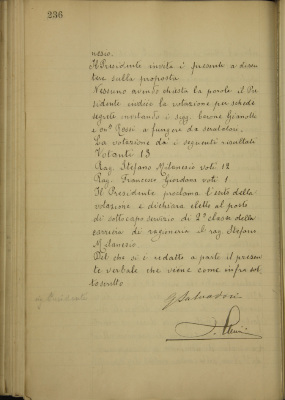 236
nesso.
Il Presidente invita i presenti a discu
tere sulla proposta.
Nessuno avendo chiesta la parola il Pre
sidente indice la votazione per schede
segrete invitando i sigg. barone Gianotti
e on. Rossi a fungere da scrutatori.
La votazione da' i seguenti risultati
Votanti 13
Rag. Stefano Milanesio voti 12
Rag. Francesco Giordano voti 1
Il Presidente proclama l'esito della
votazione e dichiara eletto al posto
di sottocapo servizio di 2ª classe della
carriera di ragioneria il rag. Stefano
Milanesio.
Del che si è redatto a parte il presen
te verbale che viene come infra sot
toscritto
G Salvadori